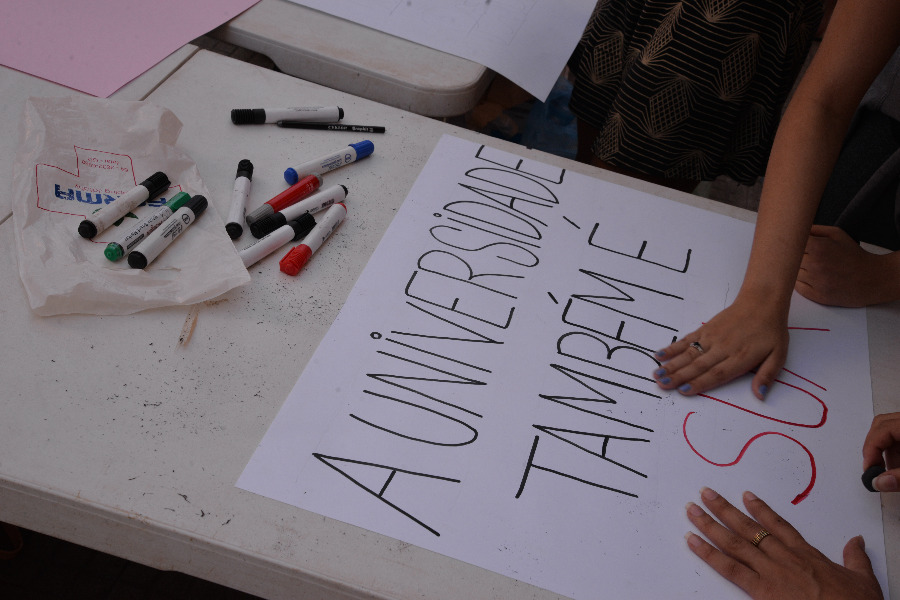 A UNIVERSIDADE
TAMBÉM É
SU